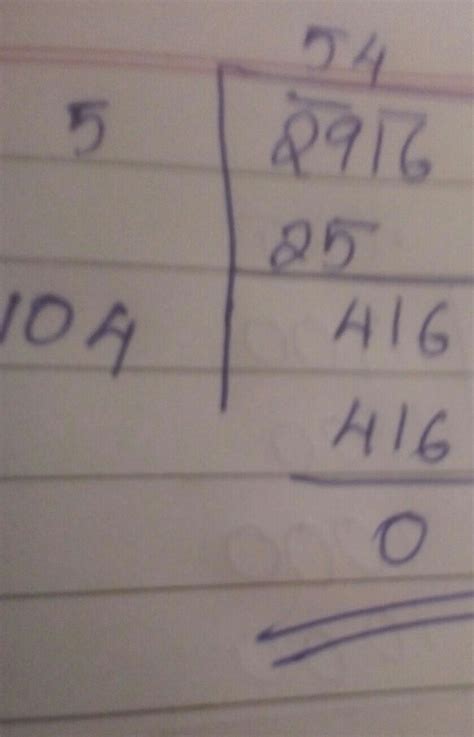 54
5 2916
25
104 416
416
0